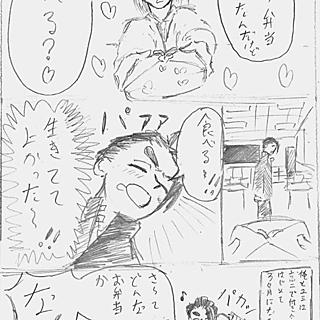 弁当
たんだけど
る？
食べる〜!!
パアア
生きてて
よかった〜!!
パカッ
さ〜て
どんな
お弁当
か
な